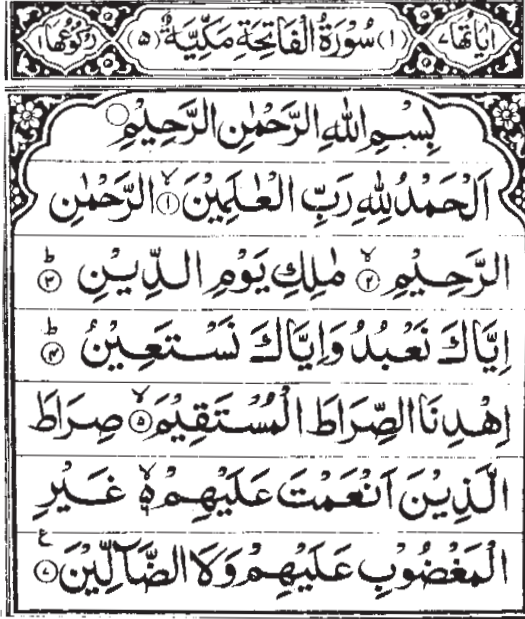 اٰيَاتُهَا ٧ (١) سُوْرَةُ الْفَاتِحَةِ مَكِّيَّةٌ (٥) رُكُوْعُهَا ١
بِسْمِ اللهِ الرَّحْمٰنِ الرَّحِيْمِ ○
اَلْحَمْدُ لِلّٰهِ رَبِّ الْعٰلَمِيْنَ ۙ﴿١﴾ الرَّحْمٰنِ
الرَّحِيْمِ ۙ﴿٢﴾ مٰلِكِ يَوْمِ الدِّيْنِ ؕ﴿٣﴾
اِيَّاكَ نَعْبُدُ وَاِيَّاكَ نَسْتَعِيْنُ ؕ﴿٤﴾
اِهْدِنَا الصِّرَاطَ الْمُسْتَقِيْمَ ۙ﴿٥﴾ صِرَاطَ
الَّذِيْنَ اَنْعَمْتَ عَلَيْهِمْ ۙ۬ۙ غَيْرِ
الْمَغْضُوْبِ عَلَيْهِمْ وَلَا الضَّآلِّيْنَ ﴿٧﴾ ع